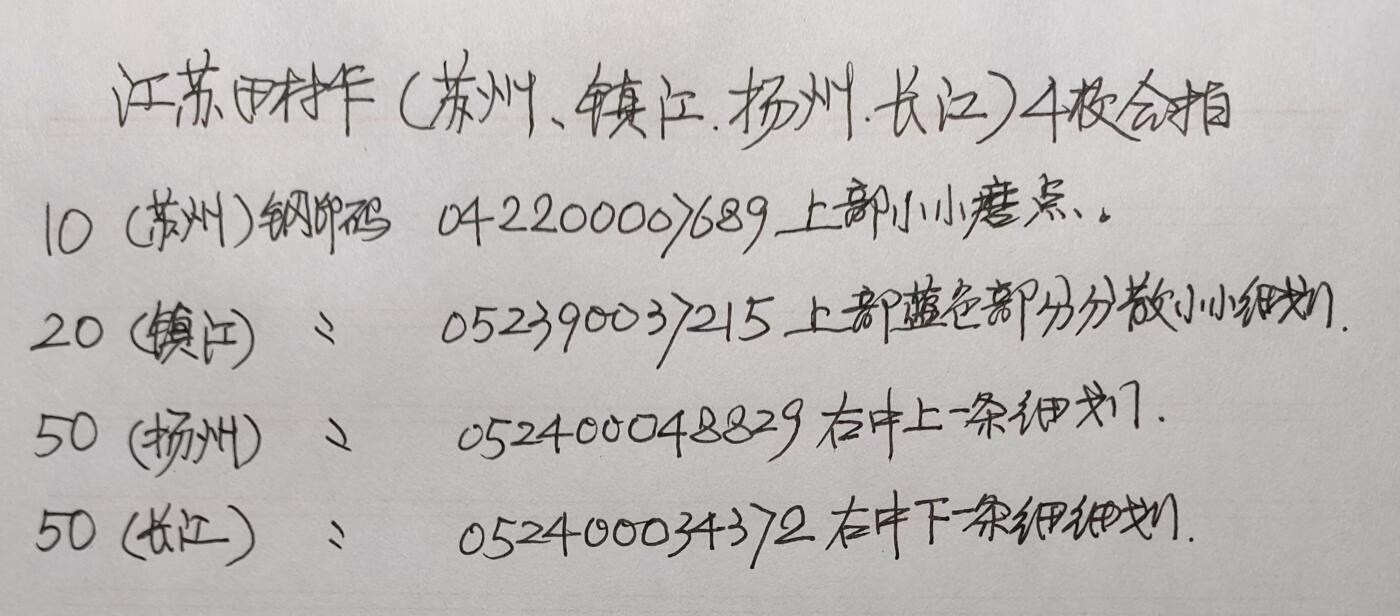 江苏田村卡(苏州、镇江.扬州.长江)4枚合拍
10(苏州)钢印码 042200007689上部小小磨点、。
20(镇江) 〃 052390037215上部蓝色部分分散小小细划.
50(扬州) 〃 052400048829右中上一条细划.
50(长江) 〃 052400034372右中下一条细细划.